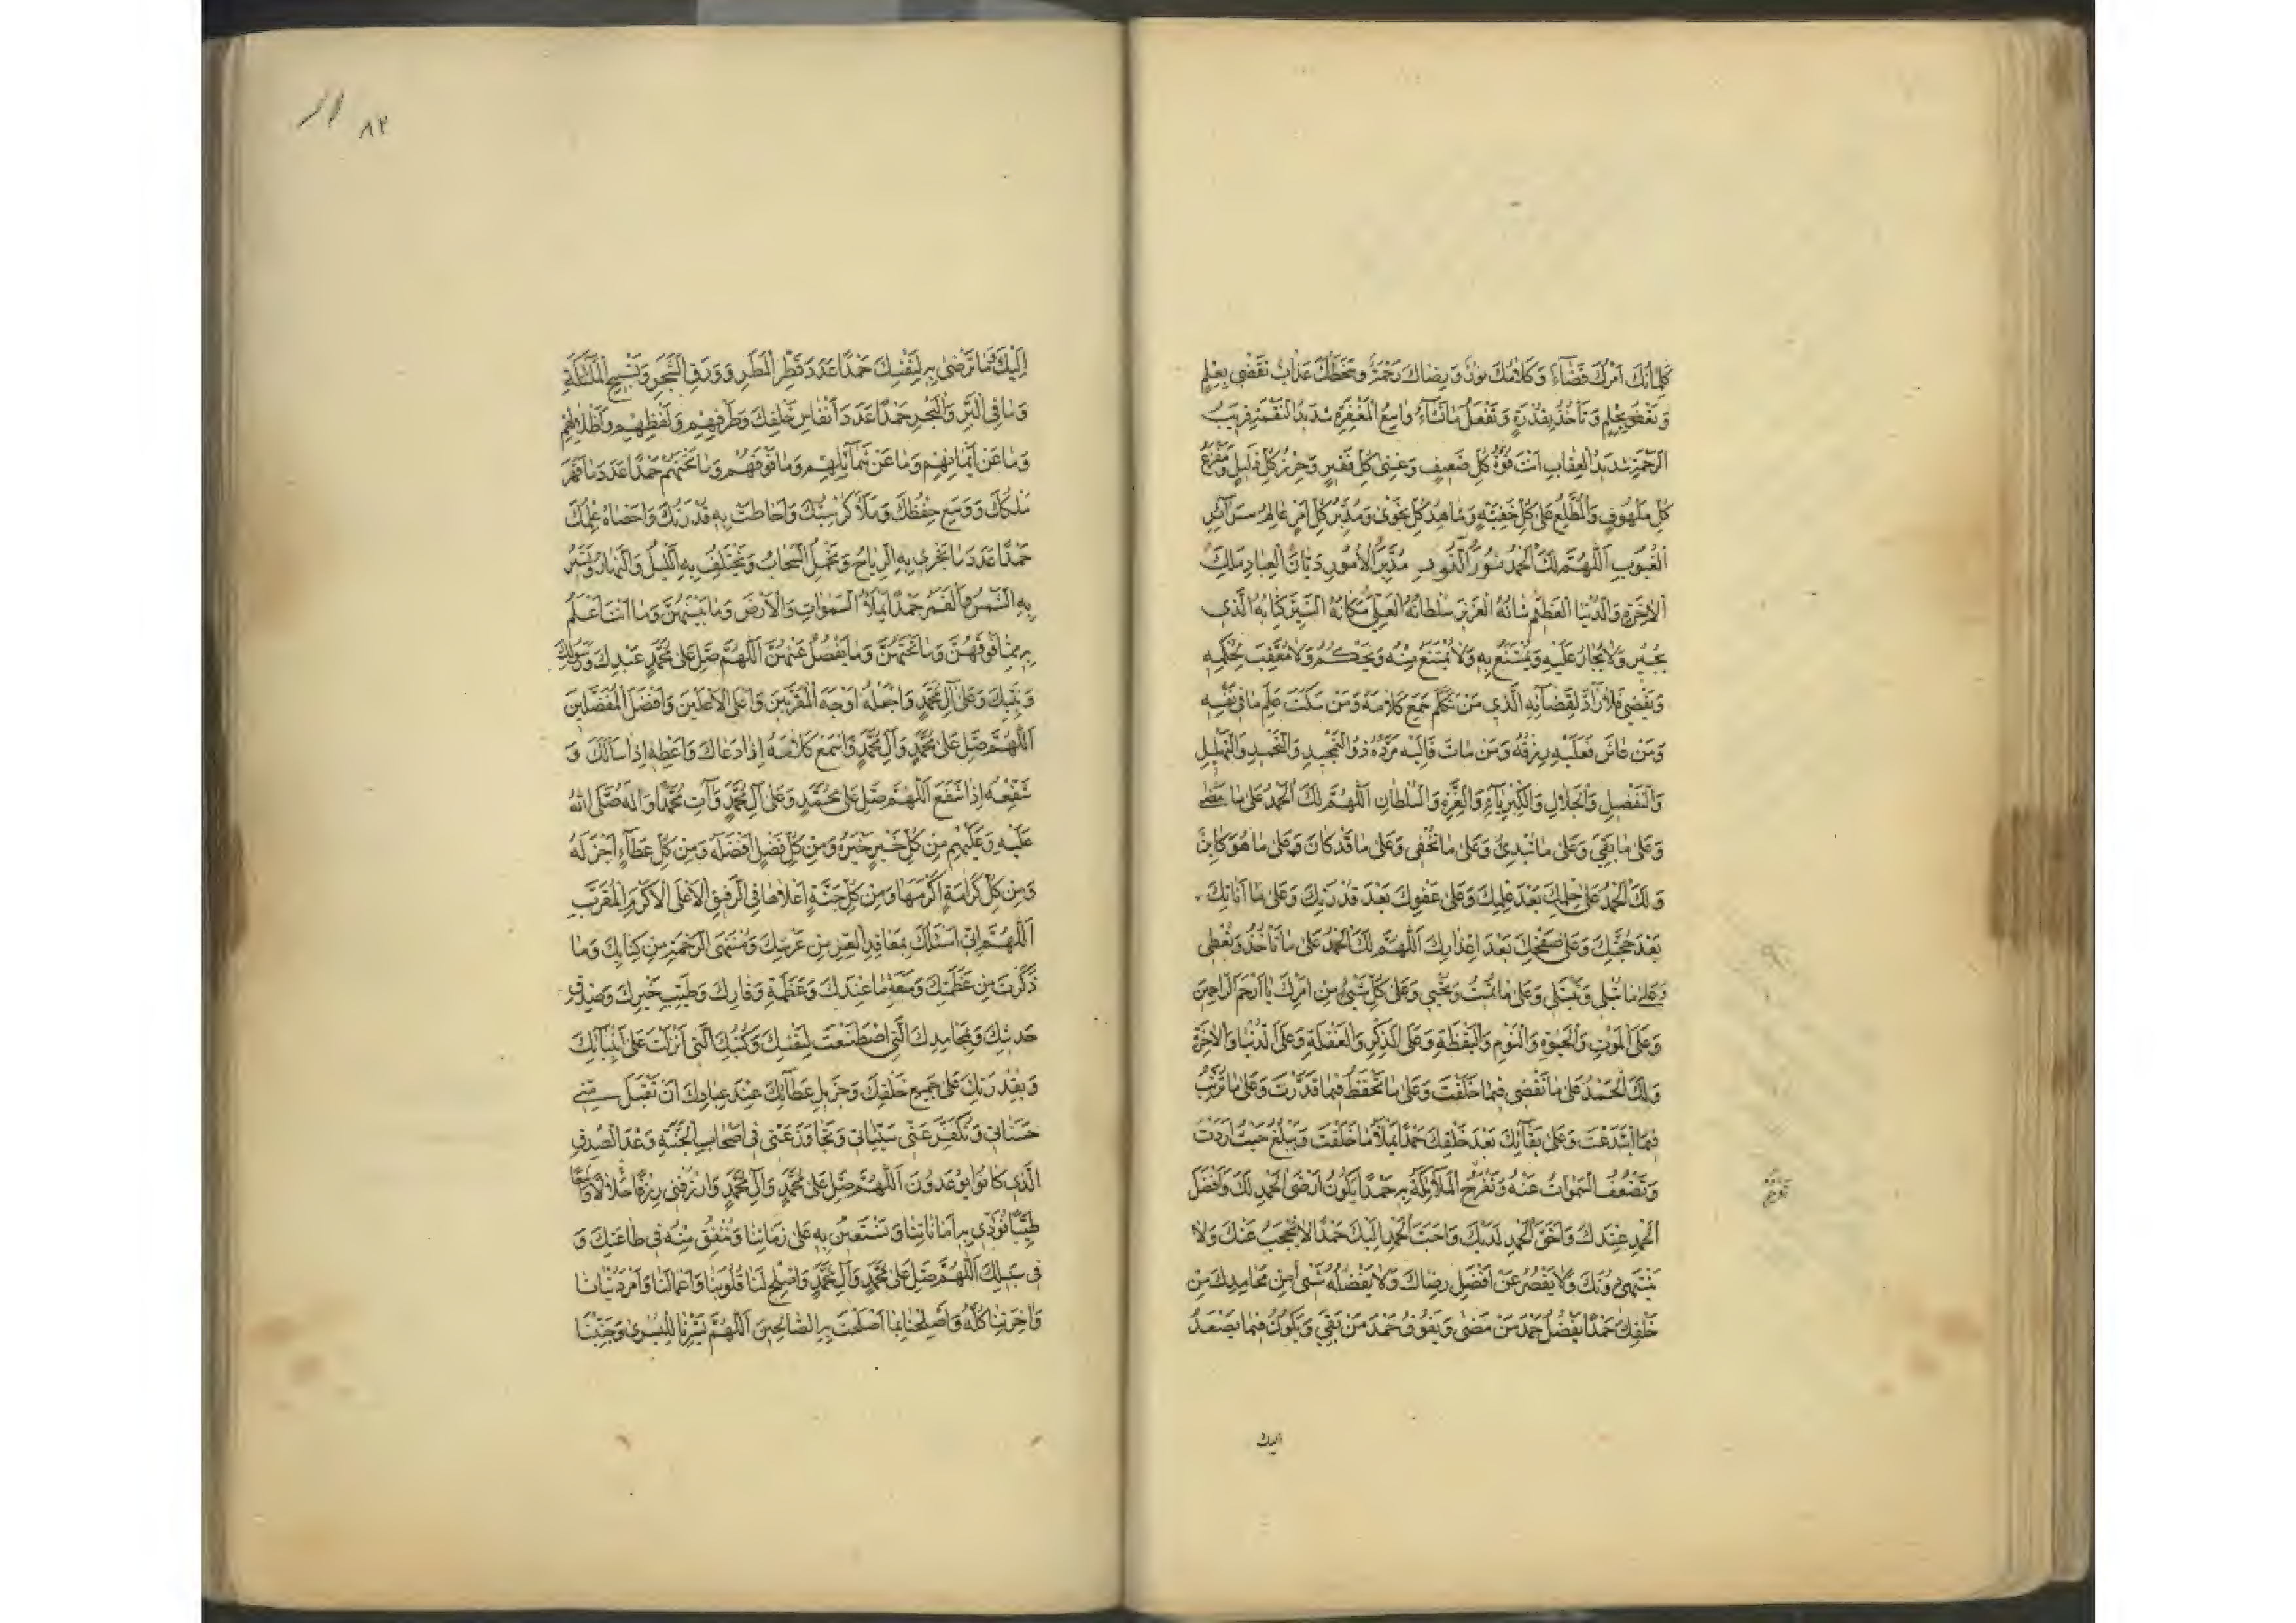 كَلِمَاتُكَ اَمْرُكَ قَضَاءٌ وَكَلَامُكَ نُورٌ وَرِضَاكَ رَحْمَةٌ وَسَخَطُكَ عَذَابٌ تَقْضِي بِعِلْمٍ
وَتَعْفُو بِحِلْمٍ وَتَأْخُذُ بِقُدْرَةٍ وَتَفْعَلُ مَا تَشَاءُ وَاسِعُ الْمَغْفِرَةِ شَدِيدُ النَّقِمَةِ قَرِيبُ
الرَّحْمَةِ شَدِيدُ الْعِقَابِ اَنْتَ قُوَّةُ كُلِّ ضَعِيفٍ وَغِنَى كُلِّ فَقِيرٍ وَحِرْزُ كُلِّ ذَلِيلٍ وَمَفْزَعُ
كُلِّ مَلْهُوفٍ وَالْمُطَّلِعُ عَلَى كُلِّ خَفِيَّةٍ وَشَاهِدُ كُلِّ نَجْوَى وَمُدَبِّرُ كُلِّ اَمْرٍ عَالِمُ سَرَآئِرِ
الْغُيُوبِ اَللّٰهُمَّ لَكَ الْحَمْدُ نُورَ النُّورِ مُدَبِّرَ الْاُمُورِ دَيَّانَ الْعِبَادِ مَلِكَ
الْآخِرَةِ وَالدُّنْيَا الْعَظِيمَ شَانُهُ الْعَزِيزَ سُلْطَانُهُ الْعَلِيَّ مَكَانُهُ النَّيِّرَ كِتَابُهُ الَّذِي
يُجِيرُ وَلَا يُجَارُ عَلَيْهِ وَيُمْتَنَعُ بِهِ وَلَا يُمْتَنَعُ مِنْهُ وَيَحْكُمُ وَلَا مُعَقِّبَ لِحُكْمِهِ
وَيَقْضِي فَلَا رَادَّ لِقَضَآئِهِ الَّذِي مَنْ تَكَلَّمَ سَمِعَ كَلَامَهُ وَمَنْ سَكَتَ عَلِمَ مَا فِي نَفْسِهِ
وَمَنْ عَاشَ فَعَلَيْهِ رِزْقُهُ وَمَنْ مَاتَ فَاِلَيْهِ مَرَدُّهُ ذُو التَّمْجِيدِ وَالتَّحْمِيدِ وَالتَّهْلِيلِ
وَالتَّفْضِيلِ وَالْجَلَالِ وَالْكِبْرِيَآءِ وَالْعِزَّةِ وَالسُّلْطَانِ اَللّٰهُمَّ لَكَ الْحَمْدُ عَلَى مَا مَضَى
وَعَلَى مَا بَقِيَ وَعَلَى مَا تُبْدِئُ وَعَلَى مَا تُخْفِي وَعَلَى مَا قَدْ كَانَ وَعَلَى مَا هُوَ كَائِنٌ
وَلَكَ الْحَمْدُ عَلَى حِلْمِكَ بَعْدَ عِلْمِكَ وَعَلَى عَفْوِكَ بَعْدَ قُدْرَتِكَ وَعَلَى اَنَاتِكَ
بَعْدَ حُجَّتِكَ وَعَلَى صَفْحِكَ بَعْدَ اِعْذَارِكَ اَللّٰهُمَّ لَكَ الْحَمْدُ عَلَى مَا تَأْخُذُ وَتُعْطِي
وَعَلَى مَا تُبْلِي وَتَبْتَلِي وَعَلَى مَا تُمِيتُ وَتُحْيِي وَعَلَى كُلِّ شَيْءٍ مِنْ اَمْرِكَ يَا اَرْحَمَ الرَّاحِمِينَ
وَعَلَى الْمَوْتِ وَالْحَيٰوةِ وَالنَّوْمِ وَالْيَقْظَةِ وَعَلَى الذِّكْرِ وَالْغَفْلَةِ وَعَلَى الدُّنْيَا وَالْآخِرَةِ
وَلَكَ الْحَمْدُ عَلَى مَا تَقْضِي فِيمَا خَلَقْتَ وَعَلَى مَا تَحْفَظُ فِيمَا قَدَّرْتَ وَعَلَى مَا تُرَتِّبُ
فِيمَا ابْتَدَعْتَ وَعَلَى بَقَآئِكَ بَعْدَ خَلْقِكَ حَمْدًا يَمْلَأُ مَا خَلَقْتَ وَيَبْلُغُ حَيْثُ اَرَدْتَ
وَتَضْعُفُ السَّمٰوَاتُ عَنْهُ وَتَفْرَحُ الْمَلَآئِكَةُ بِهِ حَمْدًا يَكُونُ اَرْضَى الْحَمْدِ لَكَ وَاَفْضَلَ
الْحَمْدِ عِنْدَكَ وَاَحَقَّ الْحَمْدِ لَدَيْكَ وَاَحَبَّ الْحَمْدِ اِلَيْكَ حَمْدًا لَا يُحْجَبُ عَنْكَ وَلَا
يَنْتَهِي دُونَكَ وَلَا يَقْصُرُ عَنْ اَفْضَلِ رِضَاكَ وَلَا يَفْضُلُهُ شَيْءٌ مِنْ مَحَامِدِكَ مِنْ
خَلْقِكَ حَمْدًا يَفْضُلُ حَمْدَ مَنْ مَضَى وَيَفُوقُ حَمْدَ مَنْ بَقِيَ وَيَكُونُ فِيمَا يَصْعَدُ
اليك
٨٢
اِلَيْكَ وَمَا تَرْضَى بِهِ لِنَفْسِكَ حَمْدًا عَدَدَ قَطْرِ الْمَطَرِ وَوَرَقِ الشَّجَرِ وَتَسْبِيحِ الْمَلَآئِكَةِ
وَمَا فِي الْبَرِّ وَالْبَحْرِ حَمْدًا عَدَدَ اَنْفَاسِ خَلْقِكَ وَطَرْفِهِمْ وَلَفْظِهِمْ وَاَظْلَالِهِمْ
وَمَا عَنْ اَيْمَانِهِمْ وَمَا عَنْ شَمَآئِلِهِمْ وَمَا فَوْقَهُمْ وَمَا تَحْتَهُمْ حَمْدًا عَدَدَ مَا قَهَرَ
مُلْكُكَ وَوَسِعَ حِفْظُكَ وَمَلَأَ كُرْسِيُّكَ وَاَحَاطَتْ بِهِ قُدْرَتُكَ وَاَحْصَاهُ عِلْمُكَ
حَمْدًا عَدَدَ مَا تَجْرِي بِهِ الرِّيَاحُ وَتَحْمِلُ السَّحَابُ وَيَخْتَلِفُ بِهِ اللَّيْلُ وَالنَّهَارُ وَتَسِيرُ
بِهِ الشَّمْسُ وَالْقَمَرُ حَمْدًا يَمْلَأُ السَّمٰوَاتِ وَالْاَرْضَ وَمَا بَيْنَهُنَّ وَمَا اَنْتَ اَعْلَمُ
بِهِ مِمَّا فَوْقَهُنَّ وَمَا تَحْتَهُنَّ وَمَا يَفْضُلُ عَنْهُنَّ اَللّٰهُمَّ صَلِّ عَلَى مُحَمَّدٍ عَبْدِكَ وَرَسُولِكَ
وَنَبِيِّكَ وَعَلَى آلِ مُحَمَّدٍ وَاجْعَلْهُ اَوْجَهَ الْمُقَرَّبِينَ وَاَعْلَى الْاَعْلَيْنَ وَاَفْضَلَ الْمُفَضَّلِينَ
اَللّٰهُمَّ صَلِّ عَلَى مُحَمَّدٍ وَآلِ مُحَمَّدٍ وَاسْمَعْ كَلَامَهُ اِذَا دَعَاكَ وَاَعْطِهِ اِذَا سَاَلَكَ وَ
شَفِّعْهُ اِذَا شَفَعَ اَللّٰهُمَّ صَلِّ عَلَى مُحَمَّدٍ وَعَلَى آلِ مُحَمَّدٍ وَآتِ مُحَمَّدًا وَآلَهُ صَلَّى اللّٰهُ
عَلَيْهِ وَعَلَيْهِمْ مِنْ كُلِّ خَيْرٍ خَيْرَهُ وَمِنْ كُلِّ فَضْلٍ اَفْضَلَهُ وَمِنْ كُلِّ عَطَآءٍ اَجْزَلَهُ
وَمِنْ كُلِّ كَرَامَةٍ اَكْرَمَهَا وَمِنْ كُلِّ جَنَّةٍ اَعْلَاهَا فِي الرَّفِيقِ الْاَعْلَى الْاَكْرَمِ الْمُقَرَّبِ
اَللّٰهُمَّ اِنِّي اَسْئَلُكَ بِمَعَاقِدِ الْعِزِّ مِنْ عَرْشِكَ وَمُنْتَهَى الرَّحْمَةِ مِنْ كِتَابِكَ وَمَا
ذَكَرْتَ مِنْ عَظَمَتِكَ وَسَعَةِ مَا عِنْدَكَ وَعَظَمَةِ وَقَارِكَ وَطَيِّبِ خَيْرِكَ وَصِدْقِ
حَدِيثِكَ وَبِمَحَامِدِكَ الَّتِي اصْطَنَعْتَ لِنَفْسِكَ وَكُتُبِكَ الَّتِي اَنْزَلْتَ عَلَى اَنْبِيَآئِكَ
وَبِقُدْرَتِكَ عَلَى جَمِيعِ خَلْقِكَ وَجَزِيلِ عَطَآئِكَ عِنْدَ عِبَادِكَ اَنْ تَقْبَلَ مِنِّي
حَسَنَاتِي وَتُكَفِّرَ عَنِّي سَيِّئَاتِي وَتَجَاوَزَ عَنِّي فِي اَصْحَابِ الْجَنَّةِ وَعْدَ الصِّدْقِ
الَّذِي كَانُوا يُوعَدُونَ اَللّٰهُمَّ صَلِّ عَلَى مُحَمَّدٍ وَآلِ مُحَمَّدٍ وَارْزُقْنِي رِزْقًا حَلَالًا وَاسِعًا
طَيِّبًا نُؤَدِّي بِهِ اَمَانَاتِنَا وَنَسْتَعِينُ بِهِ عَلَى زَمَانِنَا وَنُنْفِقُ مِنْهُ فِي طَاعَتِكَ وَ
فِي سَبِيلِكَ اَللّٰهُمَّ صَلِّ عَلَى مُحَمَّدٍ وَآلِ مُحَمَّدٍ وَاَصْلِحْ لَنَا قُلُوبَنَا وَاَعْمَالَنَا وَاَمْرَ دُنْيَانَا
وَآخِرَتِنَا كُلَّهُ وَاَصْلِحْنَا بِمَا اَصْلَحْتَ بِهِ الصَّالِحِينَ اَللّٰهُمَّ يَسِّرْنَا لِلْيُسْرَى وَجَنِّبْنَا